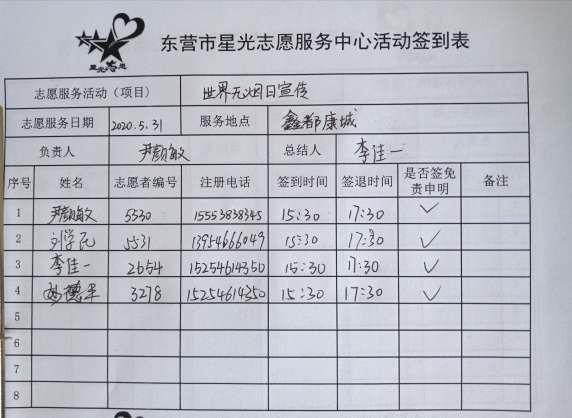 星光志愿
东营市星光志愿服务中心活动签到表
志愿服务活动（项目） 世界无烟日宣传
志愿服务日期 2020.5.31 服务地点 鑫都康城
负责人 尹颜敏 总结人 李佳一
序号 姓名 志愿者编号 注册电话 签到时间 签退时间 是否签免责申明 备注
1 尹颜敏 5530 15553838345 15:30 17:30 ✓
2 刘学民 5531 13954666049 15:30 17:30 ✓
3 李佳一 2654 15254614350 15:30 17:30 ✓
4 3278 15254614350 15:30 17:30 ✓
5
6
7
8